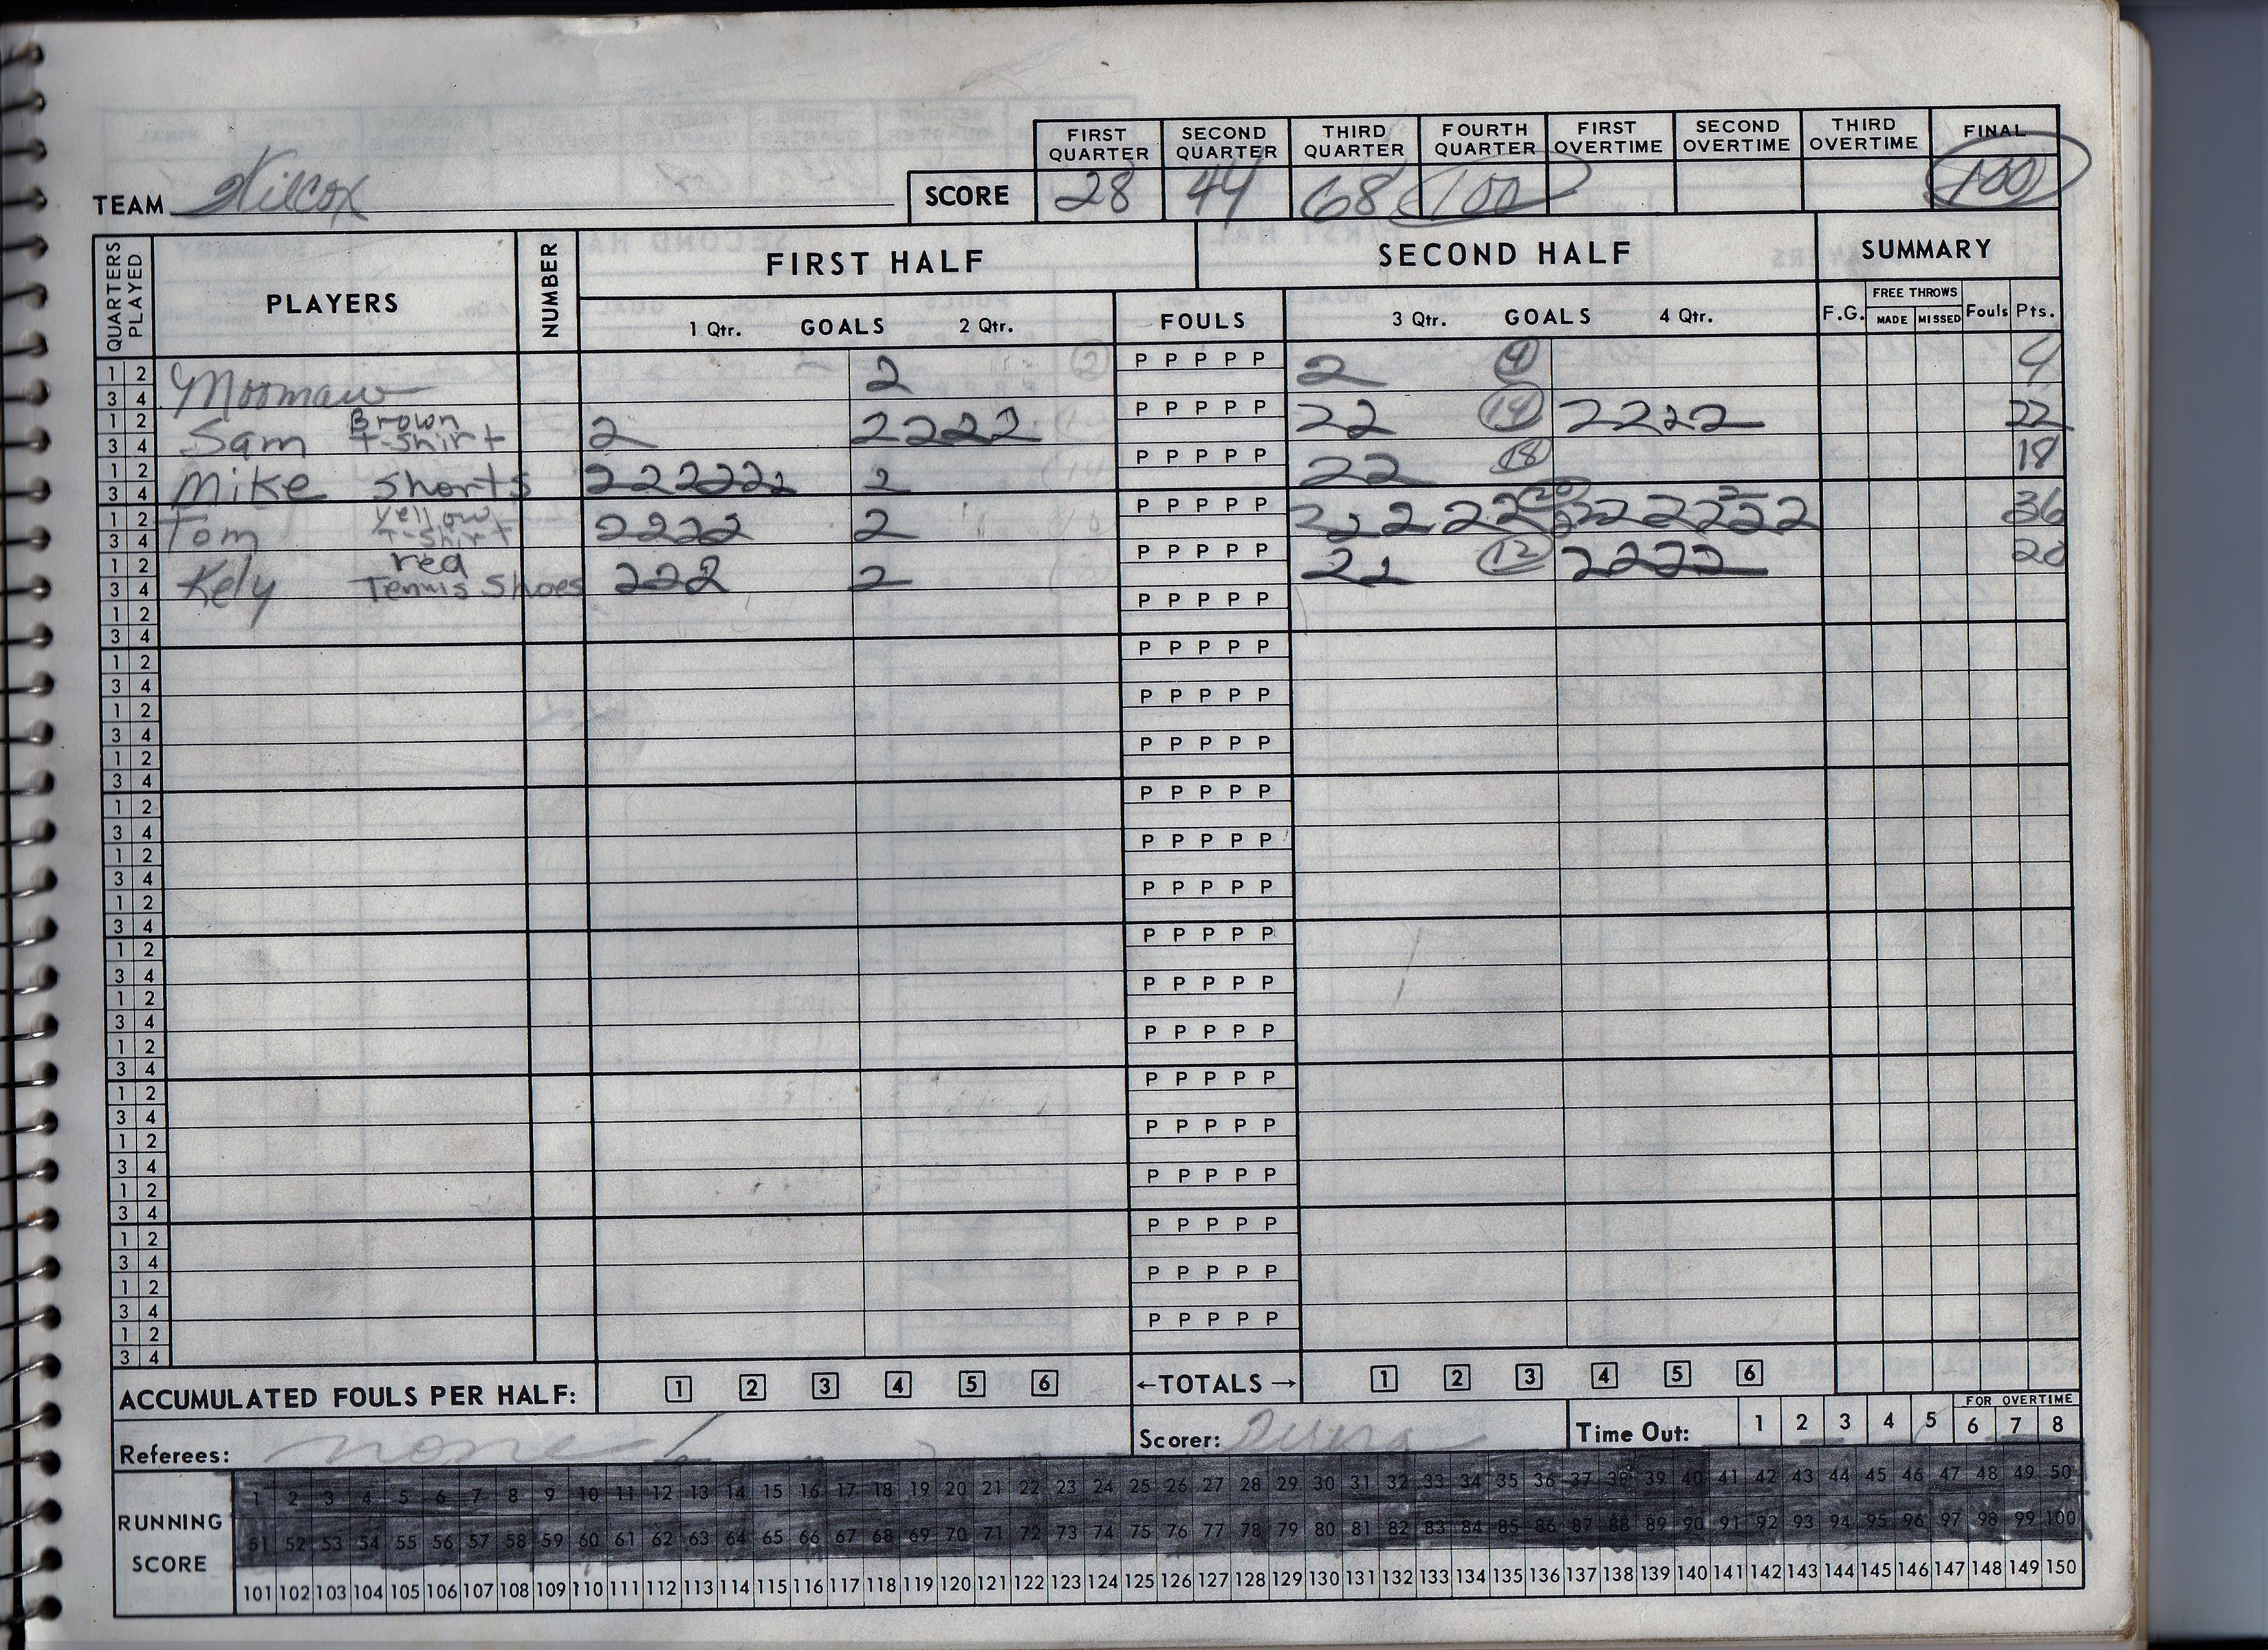 FIRST QUARTER SECOND QUARTER THIRD QUARTER FOURTH QUARTER FIRST OVERTIME SECOND OVERTIME THIRD OVERTIME FINAL
TEAM Wilcox SCORE 28 44 68 100 100
QUARTERS PLAYED PLAYERS NUMBER FIRST HALF SECOND HALF SUMMARY
1 Qtr. GOALS 2 Qtr. FOULS 3 Qtr. GOALS 4 Qtr. F.G. FREE THROWS MADE MISSED Fouls Pts.
1 2 3 4 Moomaw 2 P P P P P 2 4 4
1 2 3 4 Sam Brown T-Shirt 2 2222 P P P P P 22 14 2222 22
1 2 3 4 Mike Shorts 222222 2 P P P P P 22 18 18
1 2 3 4 Tom Yellow T-Shirt 2222 2 P P P P P 36
1 2 3 4 Kely red Tennis Shoes 222 2 P P P P P 22 12 2222 20
1 2 3 4 P P P P P
1 2 3 4 P P P P P
1 2 3 4 P P P P P
1 2 3 4 P P P P P
1 2 3 4 P P P P P
1 2 3 4 P P P P P
1 2 3 4 P P P P P
1 2 3 4 P P P P P
1 2 3 4 P P P P P
1 2 3 4 P P P P P
1 2 3 4 P P P P P
1 2 3 4 P P P P P
1 2 3 4 P P P P P
1 2 3 4 P P P P P
1 2 3 4 P P P P P
1 2 3 4 P P P P P
ACCUMULATED FOULS PER HALF: 1 2 3 4 5 6 ←TOTALS→ 1 2 3 4 5 6
Referees: none Scorer: Time Out: 1 2 3 4 5 FOR OVERTIME 6 7 8
1 2 3 4 5 6 7 8 9 10 11 12 13 14 15 16 17 18 19 20 21 22 23 24 25 26 27 28 29 30 31 32 33 34 35 36 37 38 39 40 41 42 43 44 45 46 47 48 49 50
RUNNING SCORE 51 52 53 54 55 56 57 58 59 60 61 62 63 64 65 66 67 68 69 70 71 72 73 74 75 76 77 78 79 80 81 82 83 84 85 86 87 88 89 90 91 92 93 94 95 96 97 98 99 100
101 102 103 104 105 106 107 108 109 110 111 112 113 114 115 116 117 118 119 120 121 122 123 124 125 126 127 128 129 130 131 132 133 134 135 136 137 138 139 140 141 142 143 144 145 146 147 148 149 150